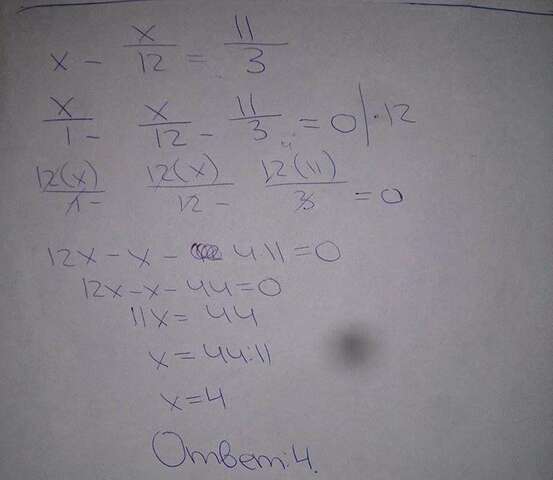 x - x/12 = 11/3
x/1 - x/12 - 11/3 = 0 | · 12
12(x)/1 - 12(x)/12 - 12(11)/3 = 0
12x - x - 4 11 = 0
12x - x - 44 = 0
11x = 44
x = 44:11
x = 4
Ответ: 4.